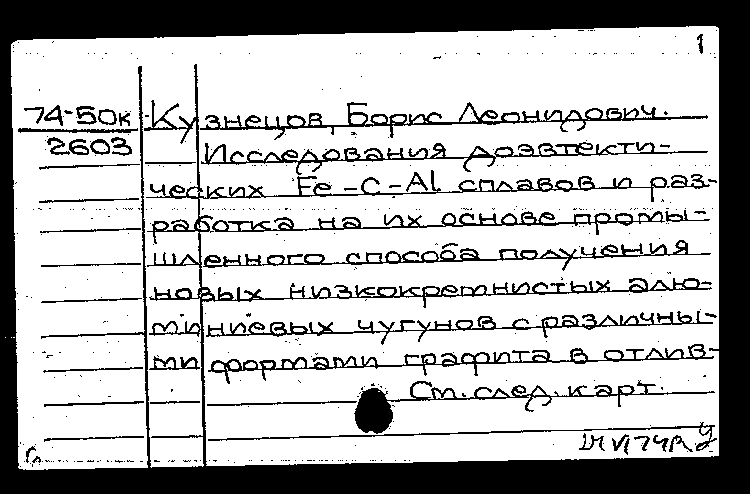 1
74-50к Кузнецов, Борис Леонидович.
2603 Исследования доэвтекти-
ческих Fe-C-Al сплавов и раз-
работка на их основе промы-
шленного способа получения
новых низкокремнистых алю-
миниевых чугунов с различны-
ми формами графита в отлив-
См. след. карт.